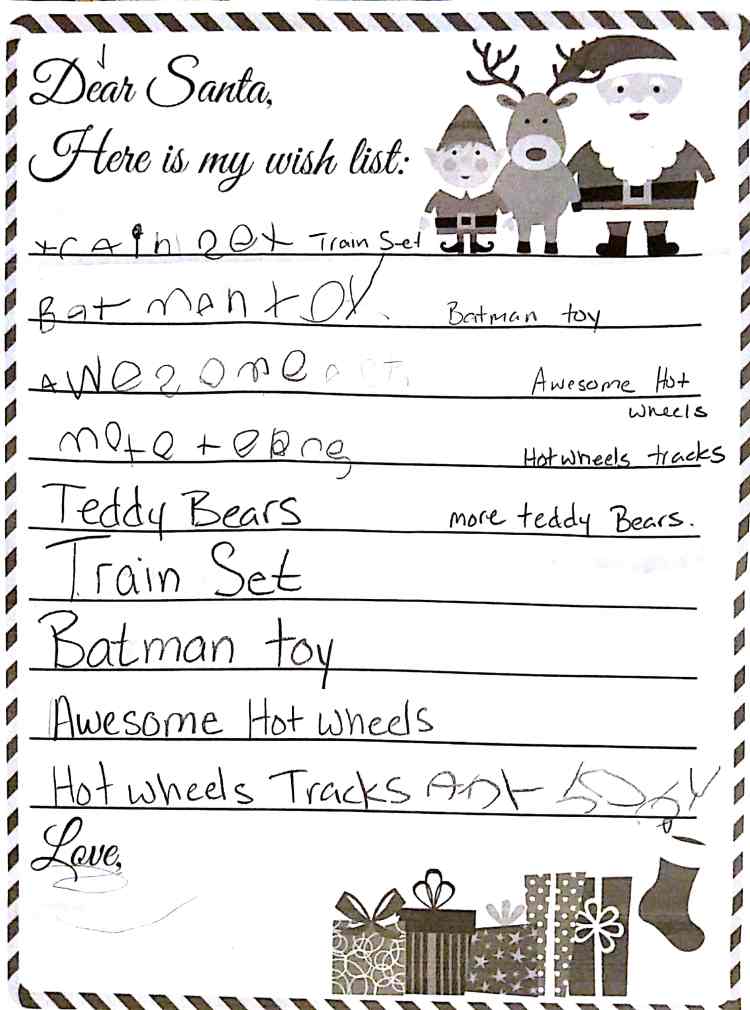 Dear Santa,
Here is my wish list:
train set Train Set
Bat man toy Batman toy
Awesome Awesome Hot
wheels
Hotwheels tracks
Teddy Bears more teddy Bears.
Train Set
Batman toy
Awesome Hot wheels
Hot wheels Tracks
Love,